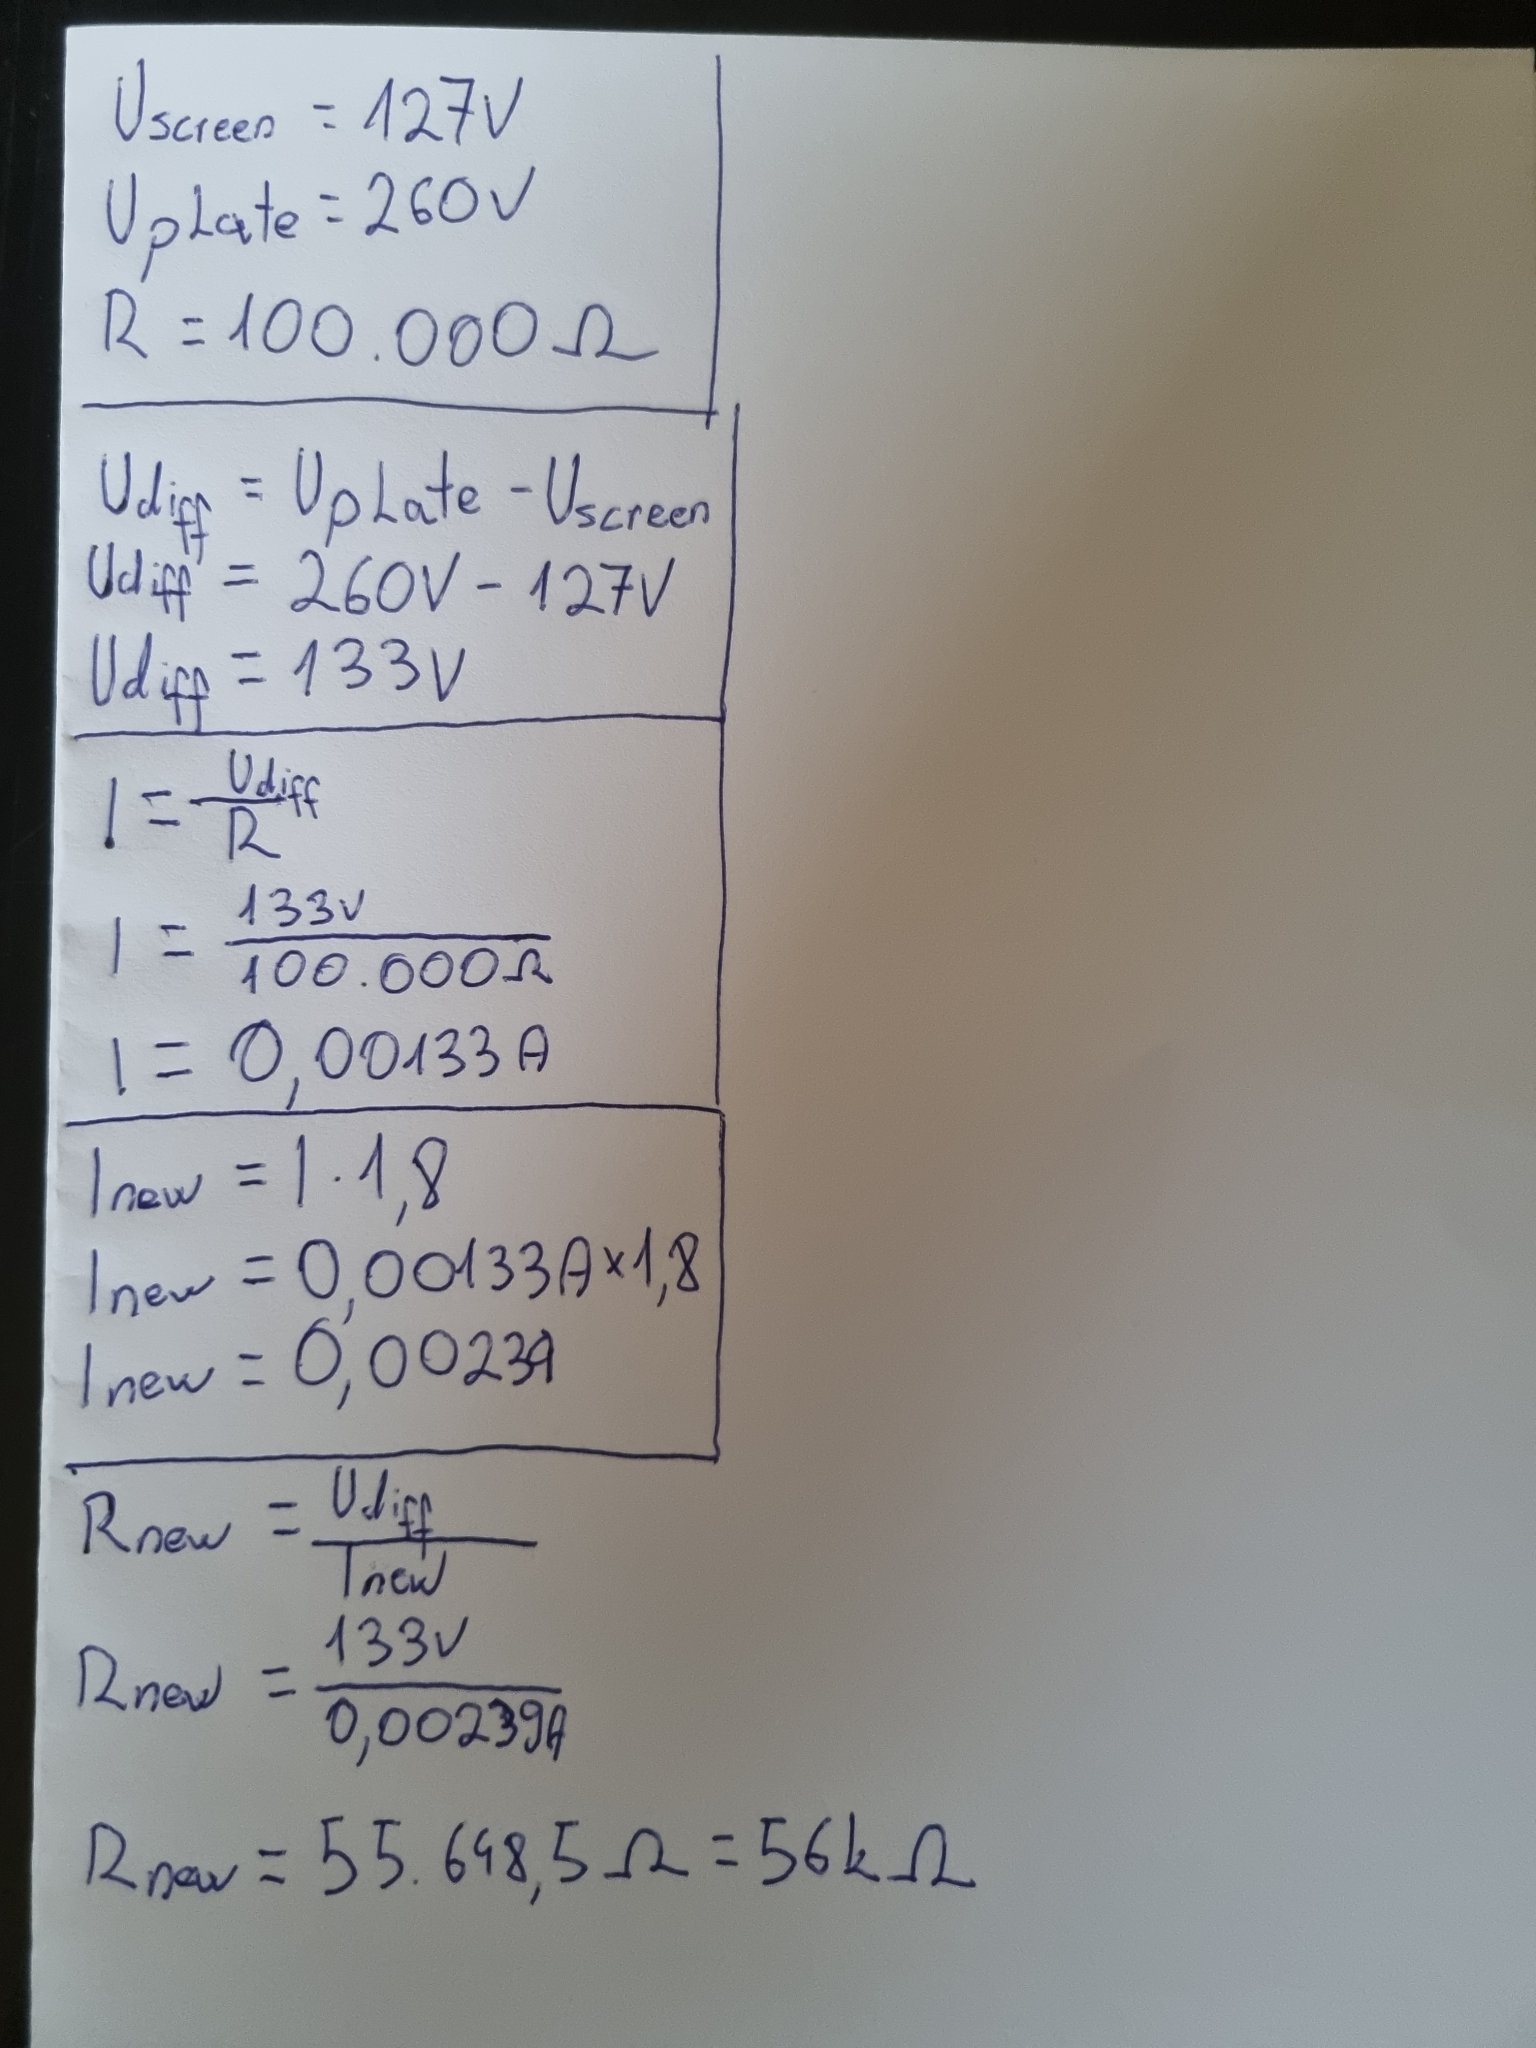 Uscreen = 127V
Uplate = 260V
R = 100.000Ω
Udiff = Uplate - Uscreen
Udiff = 260V - 127V
Udiff = 133V
I = Udiff / R
I = 133V / 100.000Ω
I = 0,00133A
Inew = I · 1,8
Inew = 0,00133A × 1,8
Inew = 0,0023A
Rnew = Udiff / Inew
Rnew = 133V / 0,00239A
Rnew = 55.648,5Ω = 56kΩ